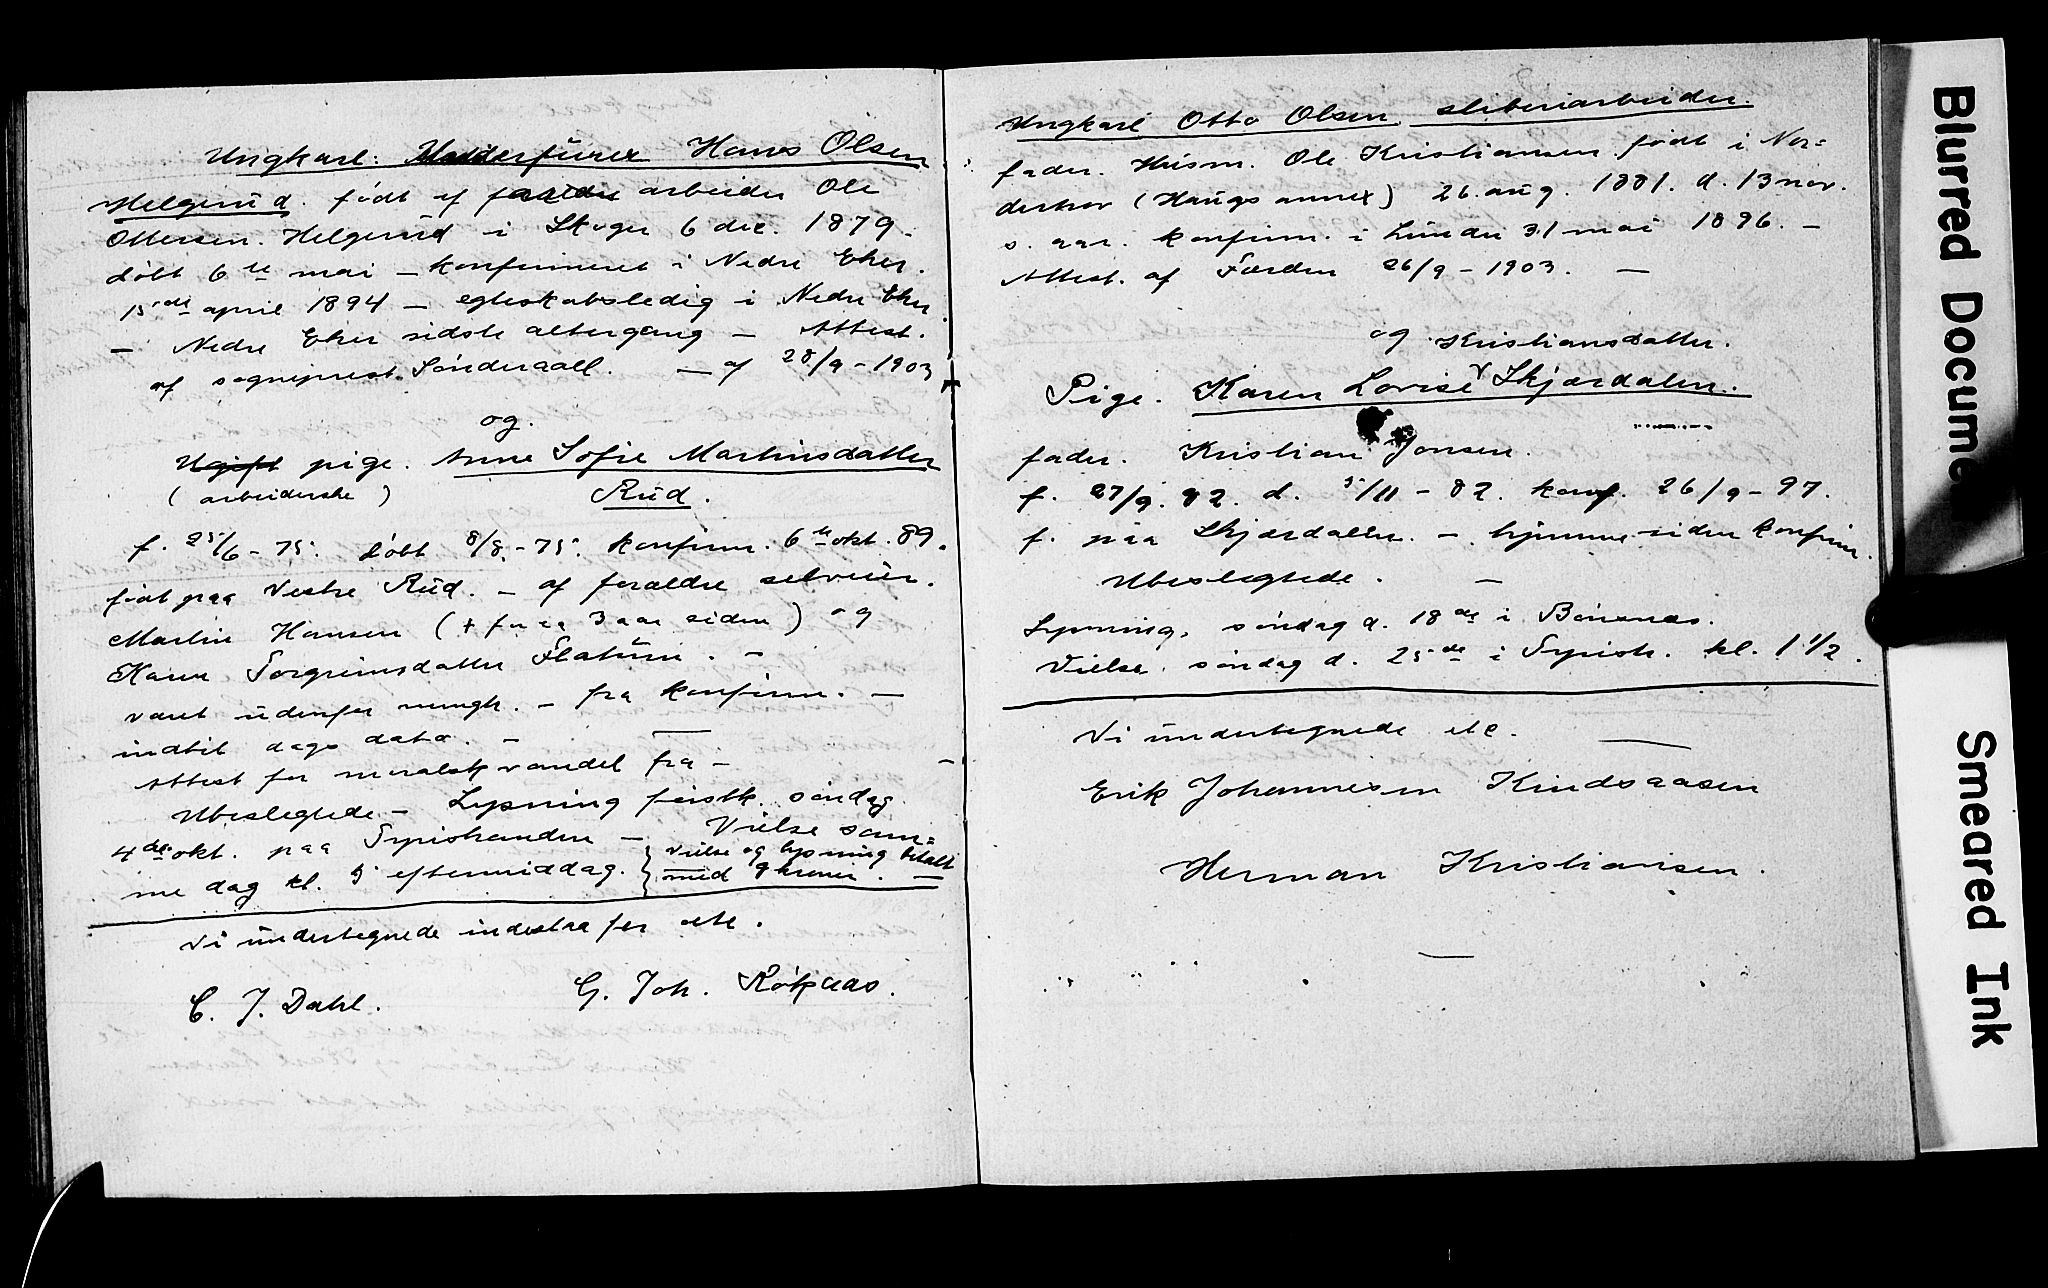 Ungkarl: Hans Olsen
Helgerud. født af arbeider Ole
Ottersen. Helgerud i Skoger 6 dec. 1879.
døbt 6te mai – konfirmeret i Nedre Eker.
15de april 1894 – egteskabsledig i Nedre Eker.
– Nedre Eker sidste altergang – Attest.
af sogneprest. Sønderaall. – af 28/9 – 1903
og.
Ugift pige. Anne Sofie Martinsdatter
(arbeiderske) Rud.
f. 25/6 – 75. døbt 8/8. – 75. konfirm. 6te okt. 89.
født paa Vestre Rud. – af forældre selveier.
Martin Hansen (+ for ca 3 aar siden) og
Karen Torgrimsdatter Flatum. –
været udenfor mengh. – fra konfirm. –
indtil dags dato. –
Attest for moralsk vandel fra –
Ubeslegtede – Lysning førstk. søndag
4de okt. paa Tyristranden – Vielse sam=
me dag kl. 5 eftermiddag. { vielse og lysning betalt
med 9 kroner. –
Vi undertegnede indestaa for etc.
C. J. Dahl. G. Joh. Røksaas.
Ungkarl Otto Olsen sliberiarbeider.
fader. Husm. Ole Kristiansen født i Nor=
derhov (Haugs annex) 26. aug. 1881. d. 13 nov.
s. aar. konfirm. i Lunder 31 mai 1896. –
Attest. af Færden 26/9 – 1903. –
og Kristiansdatter.
Pige. Karen Lovise v Skjærdalen.
fader. Kristian Jonsen.
f. 27/9. 82. d. 5/11 – 82. konf. 26/9 – 97.
f. paa Skjærdalen. – hjemme siden konfirm.
Ubeslegtede. –
Lysning. søndag d. 18de i Bønsnæs.
Vielse. søndag d. 25de i Tyristr. kl. 1 1/2.
Vi undertegnede etc. –
Erik Johannesen Kindsaasen
Herman Kristiansen.
Blurred Docume
Smeared Ink